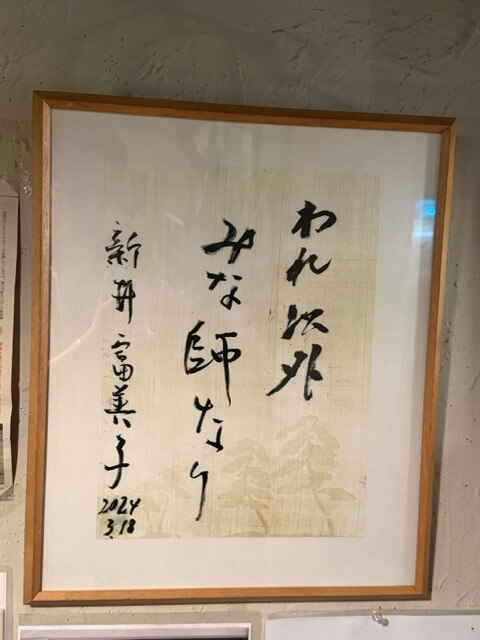 われ以外
みな師なり
新井富美子
2024
3.18